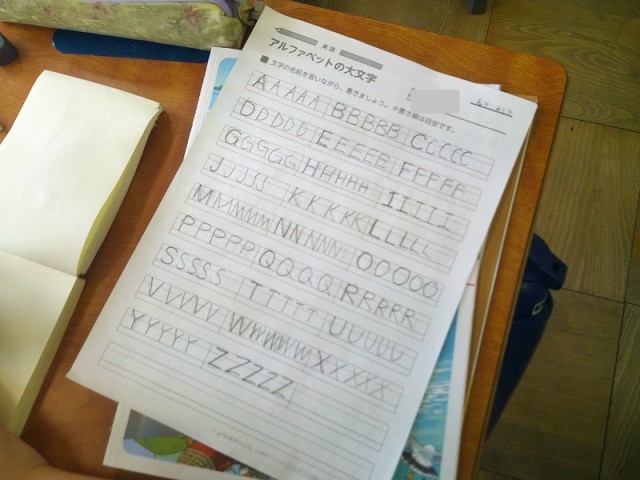 英語
アルファベットの大文字
■ 文字の名前を言いながら、書きましょう。※書き順は目安です。
A A A A A B B B B B C C C C C
D D D D D E E E E E F F F F F
G G G G G H H H H H I I I I I
J J J J J K K K K K L L L L L
M M M M M N N N N N O O O O O
P P P P P Q Q Q Q Q R R R R R
S S S S S T T T T T U U U U U
V V V V V W W W W W X X X X X
Y Y Y Y Y Z Z Z Z Z